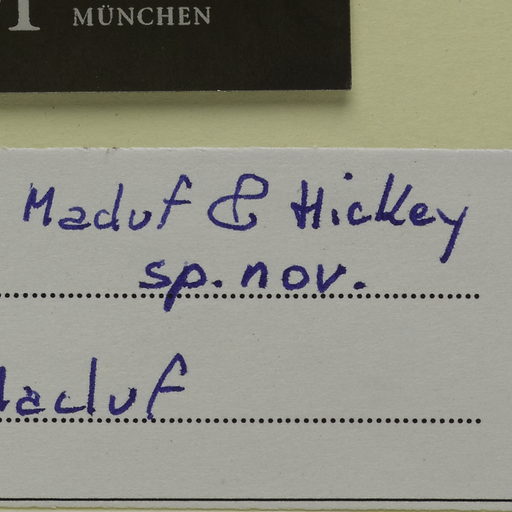 MÜNCHEN
Maduf & Hickey
sp. nov.
Maduf